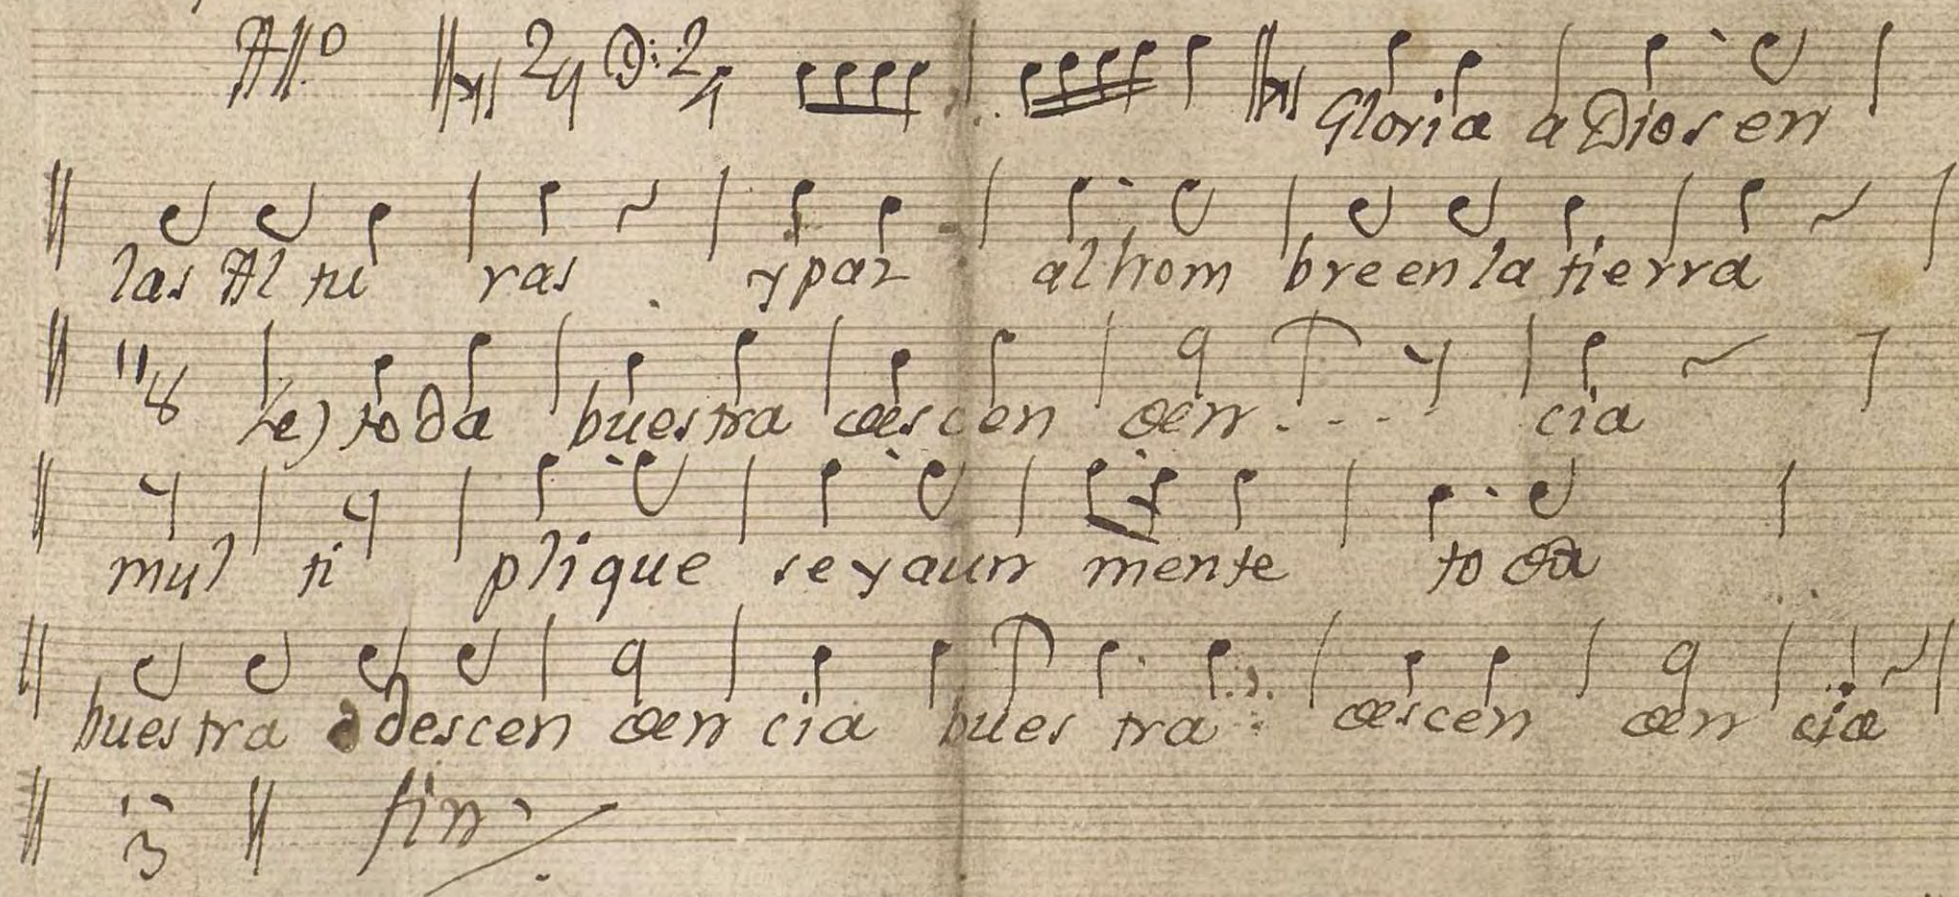 All.o 2/4 2/4 Gloria a Dios en
las Altu ras y paz al hom bre en la tierra
11 8 toda buestra descen den - - - - cia
mul ti plique se y aun mente toda
buestra descen den cia bues tra descen den cia
3 fin